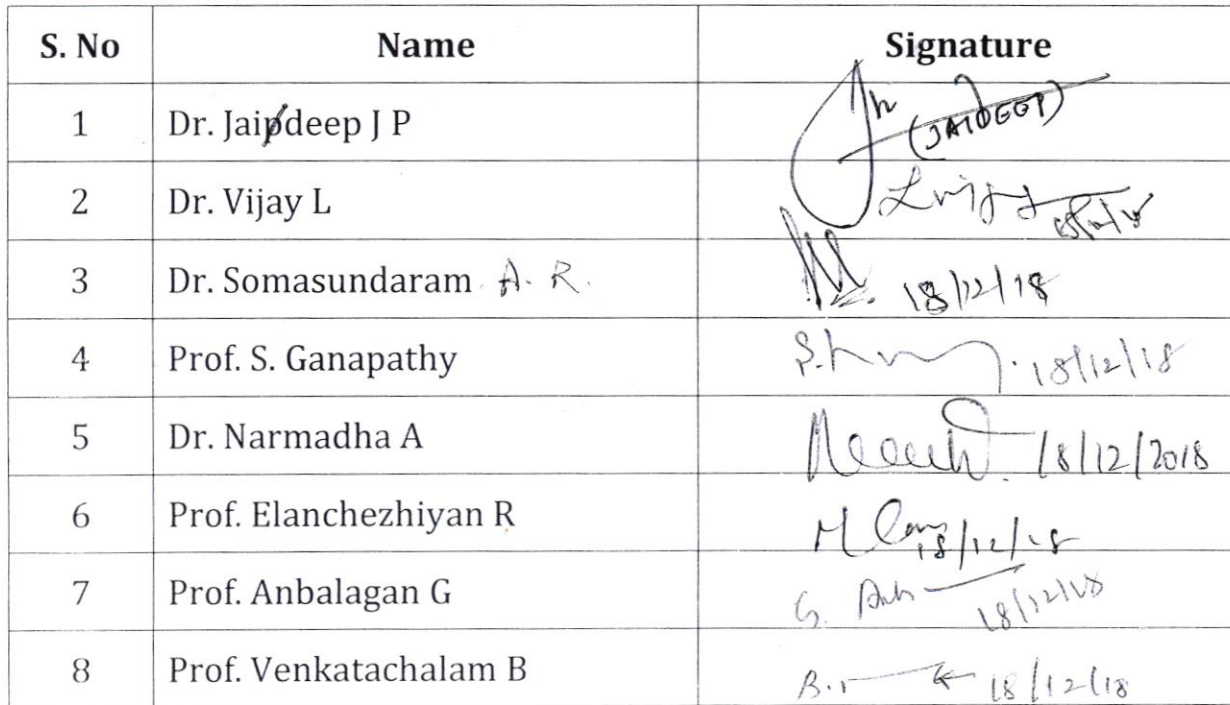 S. No Name Signature
1 Dr. Jaipdeep J P (JAIDEEP)
2 Dr. Vijay L
3 Dr. Somasundaram A. R. 18/12/18
4 Prof. S. Ganapathy 18/12/18
5 Dr. Narmadha A 18/12/2018
6 Prof. Elanchezhiyan R 18/12/18
7 Prof. Anbalagan G G. 18/12/18
8 Prof. Venkatachalam B 18/12/18